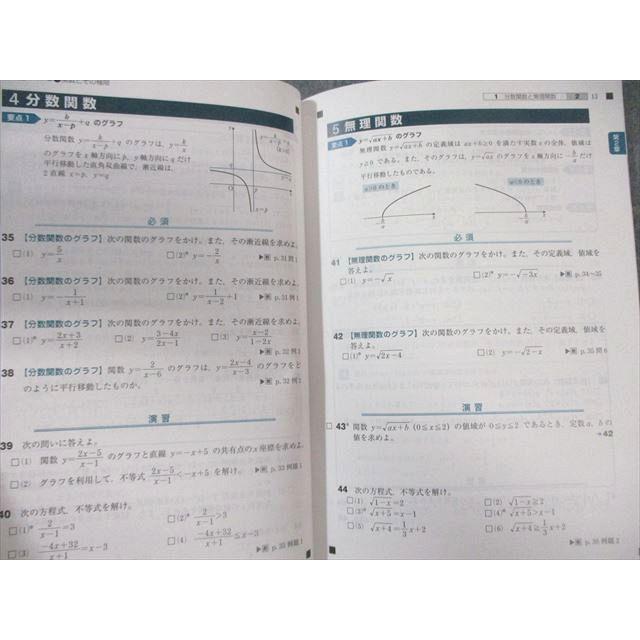 4 分数関数
要点1 y=k/(x-p)+q のグラフ
分数関数 y=k/(x-p)+q のグラフは, y=k/x
のグラフを x 軸方向に p, y 軸方向に q だけ
平行移動した直角双曲線で, 漸近線は,
2 直線 x=p, y=q
必須
35 【分数関数のグラフ】 次の関数のグラフをかけ。また, その漸近線を求めよ。
□(1) y=5/x □(2)* y=-2/x ▶本 p.31 問1
36 【分数関数のグラフ】 次の関数のグラフをかけ。また, その漸近線を求めよ。
□(1) y=-1/(x+1) □(2)* y=1/(x-2)+1 ▶本 p.31 例1
37 【分数関数のグラフ】 次の関数のグラフをかけ。また, その漸近線を求めよ。
□(1)* y=(2x+3)/(x+2) □(2) y=(3-4x)/(2x-1) □(3) y=(x-2)/(1-2x)
▶本 p.32 例1
38 【分数関数のグラフ】 関数 y=2/(x-6) のグラフは, y=(2x-4)/(x-3) のグラフをど
のように平行移動したものか。 ▶本 p.32
演習
39 次の問いに答えよ。
□(1) 関数 y=(2x-5)/(x-1) のグラフと直線 y=-x+5 の共有点の x 座標を求めよ。
□(2) グラフを利用して, 不等式 (2x-5)/(x-1)<-x+5 を解け。 ▶本 p.33 例題1
40 次の方程式, 不等式を解け。
□(1)* 2/(x-1)=3 □(2)* 2/(x-1)>3
□(3) (-4x+32)/(x+1)=x-3 □(4) (-4x+32)/(x+1)≤x-3
▶本 p.33 例題1
1 分数関数と無理関数 2 13
第2章
5 無理関数
要点1 y=√(ax+b) のグラフ
無理関数 y=√(ax+b) の定義域は ax+b≥0 を満たす実数 x の全体, 値域は
y≥0 である。また, そのグラフは, y=√(ax) のグラフを x 軸方向に -b/a だけ
平行移動したものである。
a>0 のとき a<0 のとき
必須
41 【無理関数のグラフ】 次の関数のグラフをかけ。また, その定義域, 値域を
答えよ。
□(1) y=-√x □(2)* y=-√(-3x) ▶本 p.34~35
42 【無理関数のグラフ】 次の関数のグラフをかけ。また, その定義域, 値域を
答えよ。
□(1)* y=√(2x-4) □(2) y=-√(2-x) ▶本 p.35 問6
演習
□ 43* 関数 y=√(ax+b) (0≤x≤2) の値域が 0≤y≤2 であるとき, 定数 a, b の
値を求めよ。 →42
44 次の方程式, 不等式を解け。
□(1) √(1-x)=2 □(2) √(1-x)≥2
□(3)* √(x+5)=x-1 □(4)* √(x+5)>x-1
□(5) √(x+4)=1/3x+2 □(6) √(x+4)≥1/3x+2
▶本 p.36 例題2